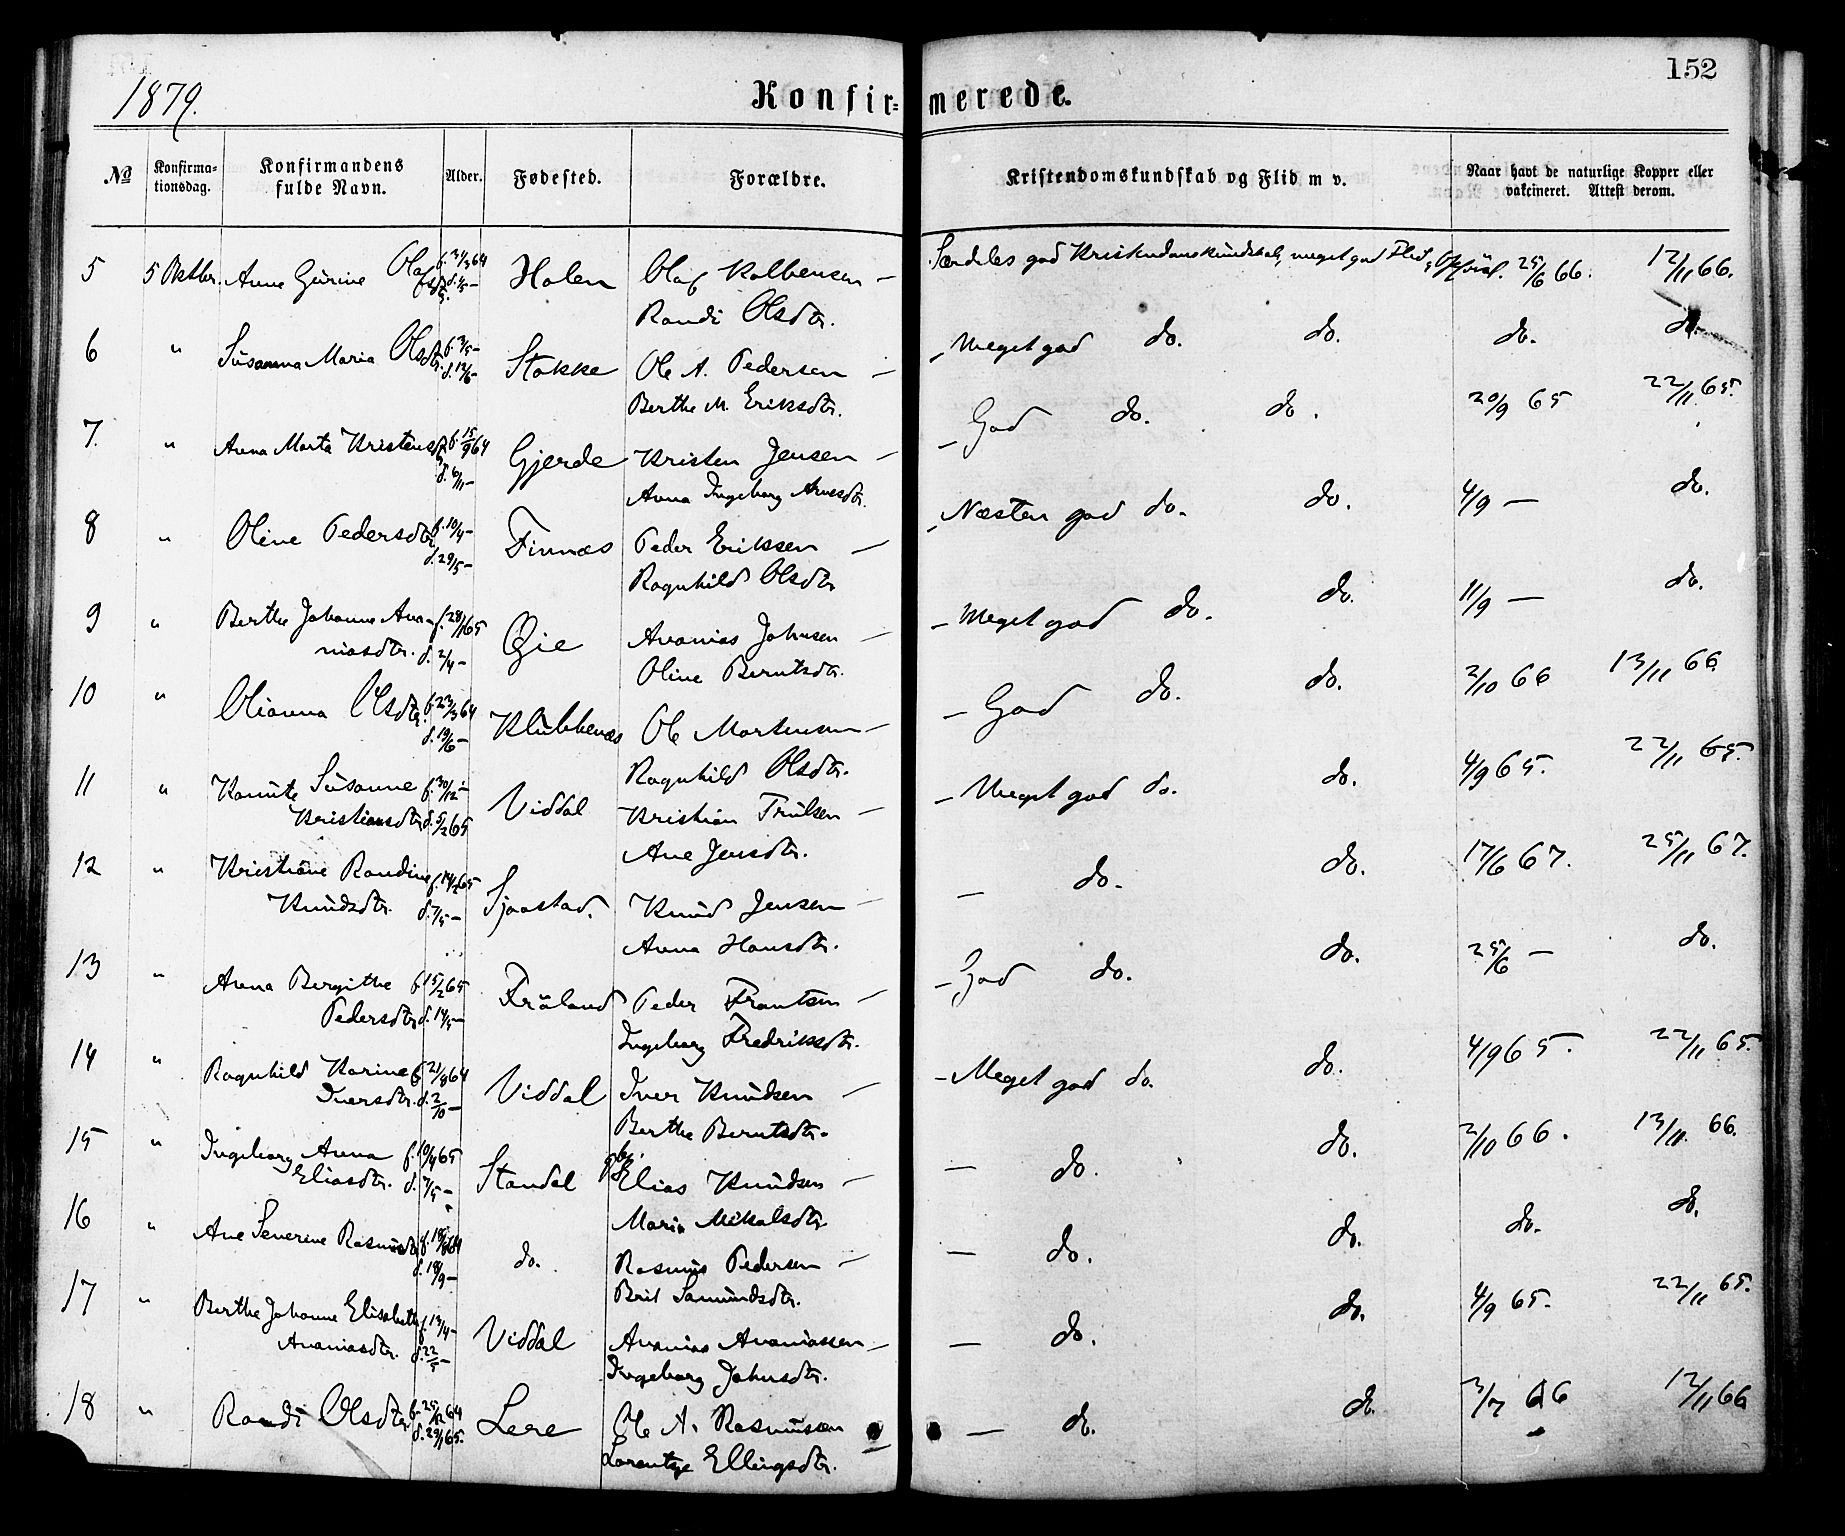 152
1879.
Konfir-merede.
No
Konfirma-
tionsdag.
Konfirmandens
fulde Navn.
Alder.
Fødested.
Forældre.
Kristendomskundskab og Flid m v.
Naar havt de naturlige Kopper eller
vakcineret. Attest derom.
5 5 Oktbr. Anne Gurine Olafsdtr. f. 31/3 64 Holen Olaf Kolbensen — Særdeles god Kristendomskundskab, meget god Flid, 25/6 66. 12/11 66.
d. 1/5 — Randi Olsdtr.
6 " Susanna Maria Olsdtr. f. 3/5 — Stokke Ole A. Pedersen — — Meget god do. do. do. do.
d. 12/6 — Berthe M. Eriksdtr.
7. " Anna Marta Kristensdtr f. 15/9 64 Gjerde Kristen Jensen — — God do. do. 20/9 65 22/11 65.
d. 6/11 — Anna Ingeborg Arnesdtr.
8 " Oline Pedersdtr f. 10/4 — Finnæs Peder Eriksen — — Næsten god do. do. 4/9 — do.
d. 29/5 — Ragnhild Olsdtr
9 " Berthe Johanne Ana- f. 28/1 65 Øie Ananias Johnsen — — Meget god do. do. 11/9 — do.
niasdtr. d. 2/4 — Oline Berntsdtr.
10 " Olianna Olsdtr. f. 23/3 64 Klubbenæs Ole Mortensen — — God do. do. 2/10 66 13/11 66.
d. 19/6 — Ragnhild Olsdtr.
11 " Kanute Susanne f. 30/12 — Viddal Kristian Trulsen — — Meget god do. do. 4/9 65. 22/11 65.
Kristiansdtr d. 5/2 65 Ane Jensdtr.
12 " Kristiane Randine f. 14/2 65 Sjaastad. Knud Jensen — — do. do. 17/6 67. 25/11 67.
Knudsdtr. d. 7/5 — Anna Hansdtr.
13 " Anna Bergithe f. 15/2 65 Fröland Peder Frantsen — — God do. do. 25/6 — do.
Pedersdtr d. 14/5 — Ingeborg Fredriksdtr.
14 " Ragnhild Karine f. 21/8 64 Viddal Iver Knudsen — — Meget god do. do. 4/9 65. 22/11 65.
Iversdtr. d. 2/10 — Berthe Berntsdtr.
15 " Ingeborg Anna f. 10/4 65 Standal Elias Knudsen — — do. do. 2/10 66. 13/11. 66.
Eliasdtr. d. 7/5 — Maria Mikalsdtr.
16 " Ane Severine Rasmusdtr do. Rasmus Pedersen — — do. do. do. do.
d. 18/9 — Brit Samundsdtr.
17 " Berthe Johanne Elisabeth f. 13/4 — Viddal Ananias Ananiassen — — do. do. 4/9 65. 22/11 65.
Ananiasdtr. d. 22/5 — Ingeborg Johnsdtr.
18 " Randi Olsdtr f. 25/12 64 Lere Ole A. Rasmussen — do. do. 3/7 66 12/11 66
d. 29/1 65. Lorentze Ellingsdtr.